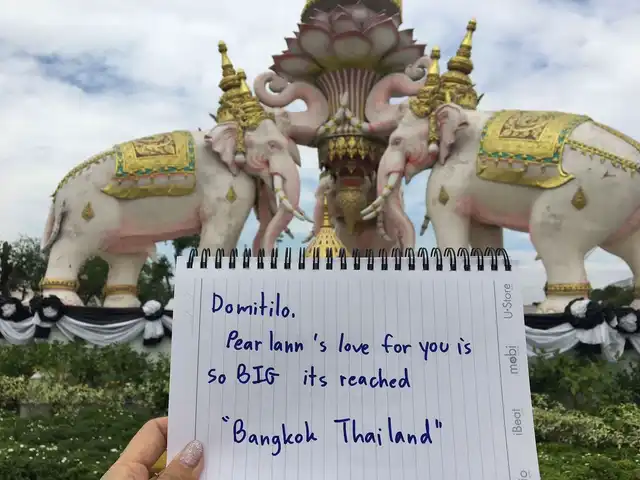 Domitilo.
Pearlann's love for you is
so BIG its reached
"Bangkok Thailand"
U-Store
mobi
iBeat